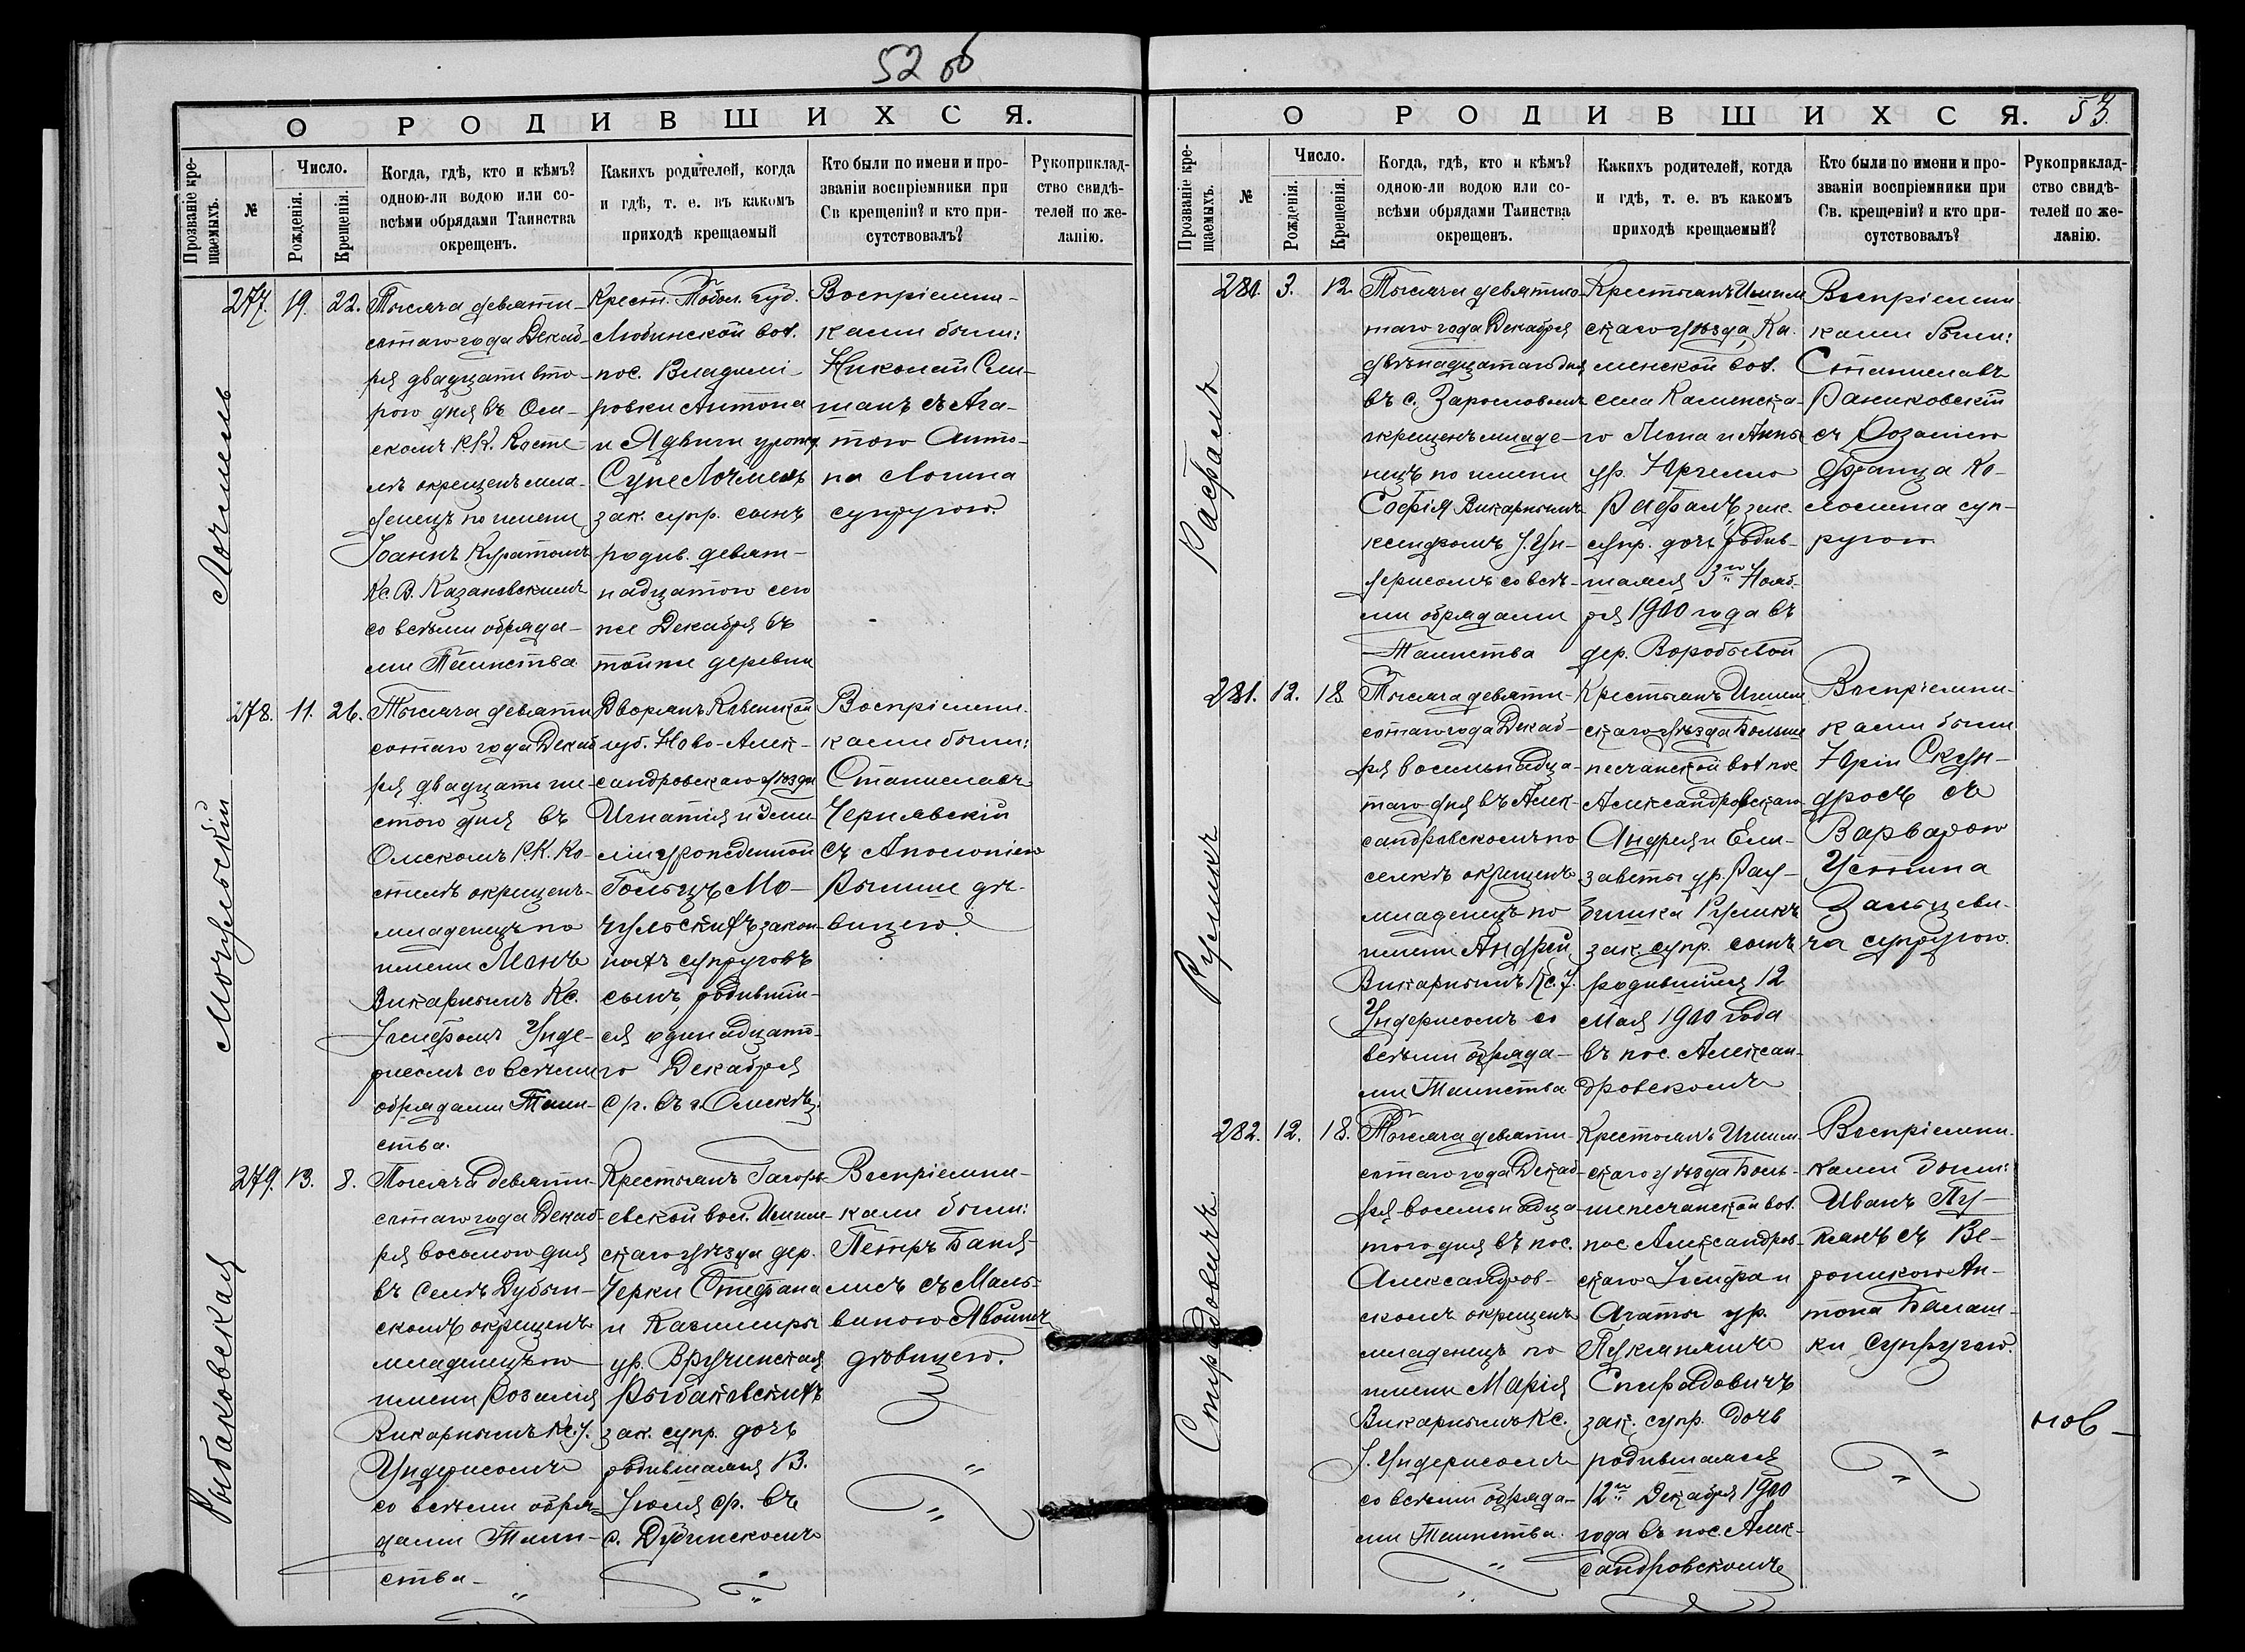 52 об
О РОДИВШИХСЯ.
Прозваніе кре-
щаемыхъ.
№
Число.
Рожденія.
Крещенія.
Когда, гдѣ, кто и кѣмъ?
одною-ли водою или со-
всѣми обрядами Таинства
окрещенъ.
Какихъ родителей, когда
и гдѣ, т. е. въ какомъ
приходѣ крещаемый
Кто были по имени и про-
званіи воспріемники при
Св крещеніи? и кто при-
сутствовалъ?
Рукоприклад-
ство свидѣ-
телей по же-
ланію.
Лочмель
277. 19. 22.
Тысяча девяти-
сотаго года Декаб-
ря двадцати вто-
рого дня въ Ом-
скомъ Р.К. Косте-
лѣ окрещенъ мла-
денецъ по имени
Іоаннъ Куратомъ
Кс. В. Казановскимъ
со всѣми обряда-
ми Таинства
Крест. Тобол. Губ.
Любинской вол.
пос. Владими-
ровки Антона
и Ядвиги урожд.
Супе Лочмель
зак. супр. сынъ
родив. девят-
надцатого сего
же Декабря въ
тойже деревни
Воспріемни-
ками были:
Николай Сли-
манъ съ Ага-
тою Анто-
на Лошта
супругою.
Мочульскій
278. 11. 26.
Тысяча девяти
сотаго года Декаб
ря двадцать ше-
стого дня въ
Омскомъ Р.К. Ко-
стелѣ окрещенъ
младенецъ по
имени Леонъ
Викарнымъ Кс.
Іосифомъ Унде-
рисомъ со всѣми
обрядами Таин-
ства.
Дворянъ Ковенской
губ. Ново-Алек-
сандровскаго уѣзда
Игнатія и Эми-
ліи урожденной
Гольцъ Мо-
чульскихъ закон-
ныхъ супруговъ
сынъ, родивший-
ся одинадцато-
го Декабря
с/г. въ г. Омскѣ.
Воспріемни-
ками были:
Станиславъ
Чернявскій
съ Аполоніею
Рымше дѣ-
вицею.
Рыбаковская
279. 13. 8.
Тысяча девяти-
сотаго года Декаб-
ря восьмого дня
въ Селѣ Дубын-
скомъ окрещенъ
младенецъ по
имени Розалія
Викарнымъ Кс. І.
Ундерисомъ
со всѣми обря-
дами Таин-
ства
Крестьянъ Гагарь-
евской вол. Ишим-
скаго уѣзда дер.
Черки Стефана
и Казимиры
ур. Вручинская
Рыбаковскихъ
зак. супр. дочь
родившаяся 13.
Іюля с/г. въ
с. Дубинскомъ
Воспріемни-
ками были:
Петръ Баня-
лисъ съ Маль-
виною Явоишъ
дѣвицею.
О РОДИВШИХСЯ. 53.
Прозваніе кре-
щаемыхъ.
№
Число.
Рожденія.
Крещенія.
Когда, гдѣ, кто и кѣмъ?
одною-ли водою или со-
всѣми обрядами Таинства
окрещенъ.
Какихъ родителей, когда
и гдѣ, т. е. въ какомъ
приходѣ крещаемый?
Кто были по имени и про-
званіи воспріемники при
Св. крещеніи? и кто при-
сутствовалъ?
Рукоприклад-
ство свидѣ-
телей по же-
ланію.
Рафалъ
280. 3. 12.
Тысяча девятисо-
таго года Декабря
двѣнадцатаго дня
въ с. Зарословомъ
окрещенъ младе-
нецъ по имени
Софія Викарнымъ
ксендзомъ І. Ун-
дерисомъ со всѣ-
ми обрядами
Таинства
Крестьянъ Ишим
скаго уѣзда, Ка-
менской вол.
села Каменска-
го Леона и Анны
ур. Юргелло
Рафалъ, зак.
супр. дочь родив-
шаяся 3го Нояб-
ря 1900 года въ
дер. Воробьевой
Воспріемни
ками были:
Станиславъ
Раниковскій
съ Розаліею
Франца Ко-
ломита суп-
ругою
Русникъ
281. 12. 18.
Тысяча девяти-
сотаго года Декаб-
ря восемнадца-
таго дня въ Алек-
сандровскомъ по
селкѣ окрещенъ
младенецъ по
имени Андрей
Викарнымъ Кс. І.
Ундерисомъ со
всѣми обряда-
ми Таинства
Крестьянъ Ишим
скаго уѣзда Больше
песчанской вол пос
Александровскаго
Андрея и Ели-
заветы ур. Рау-
бишка Русникъ
зак. супр. сынъ
родившійся 12
Мая 1900 года
въ пос. Алексан-
дровскомъ
Воспріемни-
ками были
Юрій Скун-
дросъ съ
Варварою
Устина
Зальцеви-
ча супругою.
Спирадовичъ
282. 12. 18.
Тысяча девяти-
сотаго года Декаб-
ря восемнадца-
того дня въ пос.
Александров-
скомъ окрещенъ
младенецъ по
имени Марія
Викарнымъ Кс.
І. Ундерисомъ
со всѣми обряда-
ми Таинства.
Крестьянъ Ишим
скаго уѣзда Боль-
шепесчанской вол.
пос Александров-
скаго Іосифа и
Агаты ур.
Пукмянишъ
Спирадовичъ
зак. супр. дочь
родившаяся
12го Декабря 1900
года въ пос. Алек-
сандровскомъ
Воспріемни-
ками были:
Иванъ Пу-
клянъ съ Ве-
роникою Ан-
тона Балаш-
ки супругою.